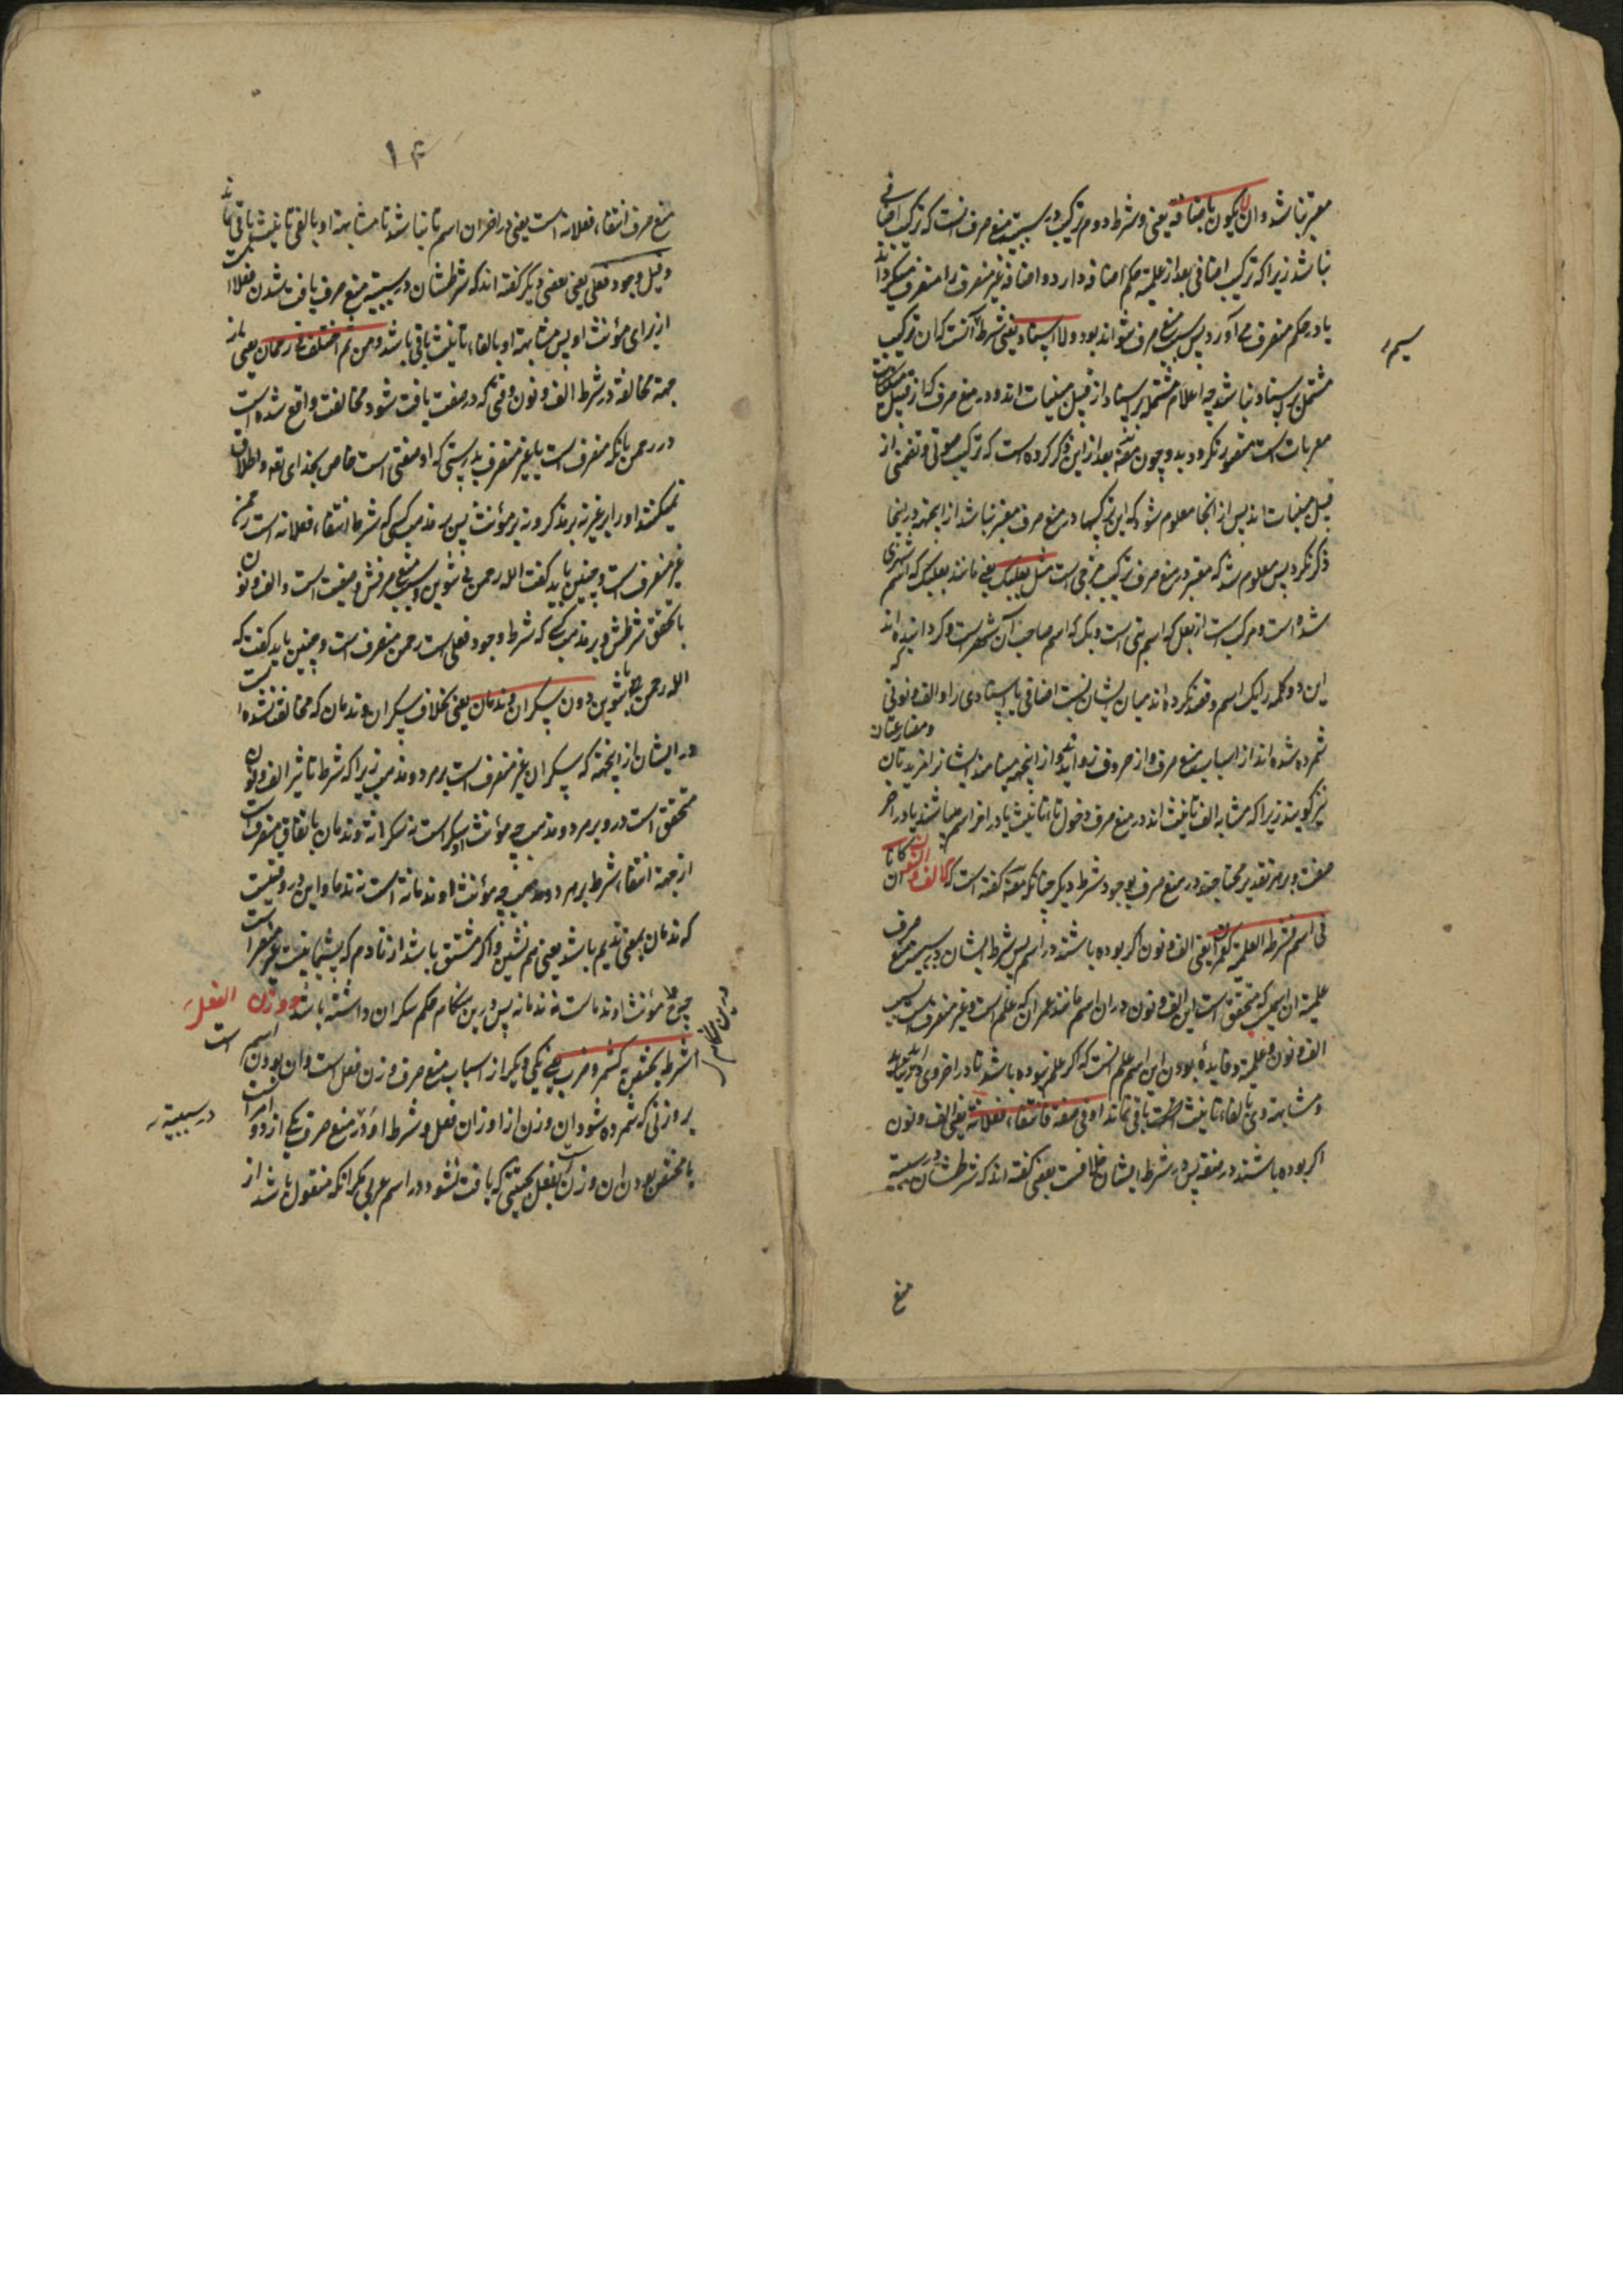 معتبر نباشد وان لا یکون باضافة یعنی و شرط دوم ترکیب در سببیت منع صرف انست که ترکیب اضافی
نباشد زیرا که ترکیب اضافی بعد از علمیة حکم اضافه دارد و اضافه غیر منصرف را منصرف میگرداند
یا در حکم منصرف می آورد پس سبب منع صرف نتواند بود ولا اسناد یعنی شرط آنست که ان ترکیب
سیم
مشتمل بر اسناد نباشد چه اعلام مشتمله بر اسناد از قبیل مبنیات اند و در منع صرف که از قبیل
معربات است متصور نگردد و چون مصنف بعد ازین ذکر کرده است که ترکیب صوتی و تضمنی از
قبیل مبنیات اند پس از انجا معلوم شود که این ترکیبها در منع صرف معتبر نباشد از اینجهة در اینجا
ذکر نکرد پس معلوم شد که معتبر در منع صرف ترکیب مزجی است مثل بعلبک یعنی مانند بعلبک که اسم شهری
شده است و مرکب است از بعل که اسم بتی است و بک که اسم صاحب آن شهر است و گردانیده اند
این دو کلمه را یک اسم و قصد نکرده اند میان ایشان نسبت اضافی یا اسنادی را و الف و نونی که
شمرده شده اند از اسباب منع صرف و از حروف زواید و از اینجهة مینامند ایشانرا مزیدتان
و مضارعتان
نیز گویند زیرا که مشابه الف تانیث اند در منع صرف دخول تاء تانیث یا در اخر اسم میباشند یا در اخر
صفت و بر هر تقدیر محتاجند در منع صرف بوجود شرط دیگر چنانکه مصنف گفته است که الف و النون ان کانا
فی اسم فشرطه العلمیة کعمران یعنی الف و نون اگر بوده باشند در اسم پس شرط ایشان در سببیت منع صرف
علمیة ان اسمی که متحقق است این الف و نون در ان اسم مانند عمران که علم است و غیر منصرف است بسبب
الف و نون و علمیة و فایده بودن این اسم علم انست که اگر علم نبوده باشد تا در اخر وی در نیاید
و مشابهة وی بالفاء تانیث باقی نماند او فی صفة فانتفاء فعلانة یعنی الف و نون
اگر بوده باشند در صفة پس در شرط ایشان خلافست بعضی گفته اند که شرطشان در سببیة
منع
۱۴
منع صرف انتفاء فعلانه است یعنی در اخر ان اسم تا نباشد تا مشابهة او بالفی تانیث باقی ماند
و قیل وجود فعلی یعنی بعضی دیگر گفته اند که شرطشان در سببیت منع صرف یافت شدن فعلا است
از برای مؤنث او پس مشابهة او بالفاء تانیث باقی باشد و من ثم اختلف فی رحمان یعنی از
جهة مخالفة در شرط الف و نون وقتی که در صفت یافت شود مخالفت واقع شده است
در رحمن بانکه منصرف است یا غیر منصرف بدرستی که او صفتی است خاص بخدای تعه و اطلاق
نمیکنند او را بر غیر نه بر مذکر و نه بر مؤنث پس بمذهب کسی که شرط انتفاء فعلانه است رحمن
غیر منصرف است و چنین باید گفت الله رحمن بی تنوین و سبب منع صرفش وصفیت است و الف و نون
با تحقق شرطش و بر مذهب کسی که شرط وجود فعلی است رحمن منصرف است و چنین باید گفت که
الله رحمن با تنوین دون سکران و ندمان یعنی بخلاف سکران و ندمان که مخالفت نشده است
در ایشان از اینجهة که سکران غیر منصرف است بر هر دو مذهب زیرا که شرط تاثیر الف و نون
متحقق است در و بر هر دو مذهب چه مؤنث او سکر است نه سکرانة و ندمان باتفاق منصرف است
از جهة انتفاء شرط بر هر دو مذهب چه مؤنث او ندمانة است نه ندما و این در وقتیست
که ندمان بمعنی ندیم باشد یعنی هم نشین و اگر مشتق باشد از نادم که پشیمانیست غیر منصرف است
چه مؤنث او ندما است نه ندمانه پس درین هنگام حکم سکران داشته باشد ووزن الفعل
درین هنگام
شرطه ان یختص به کشمر و ضرب یعنی یکی دیگر از اسباب منع صرف وزن فعل است و ان بودن اسم است
بر وزنی که شمرده شود ان وزن از اوزان فعل و شرط او در منع صرف یکی از دو امر است
در سببیة
یا مختص بودن ان وزن است بفعل بحیثیتی که یافت نشود در اسم عربی مگر انکه منقول باشد از